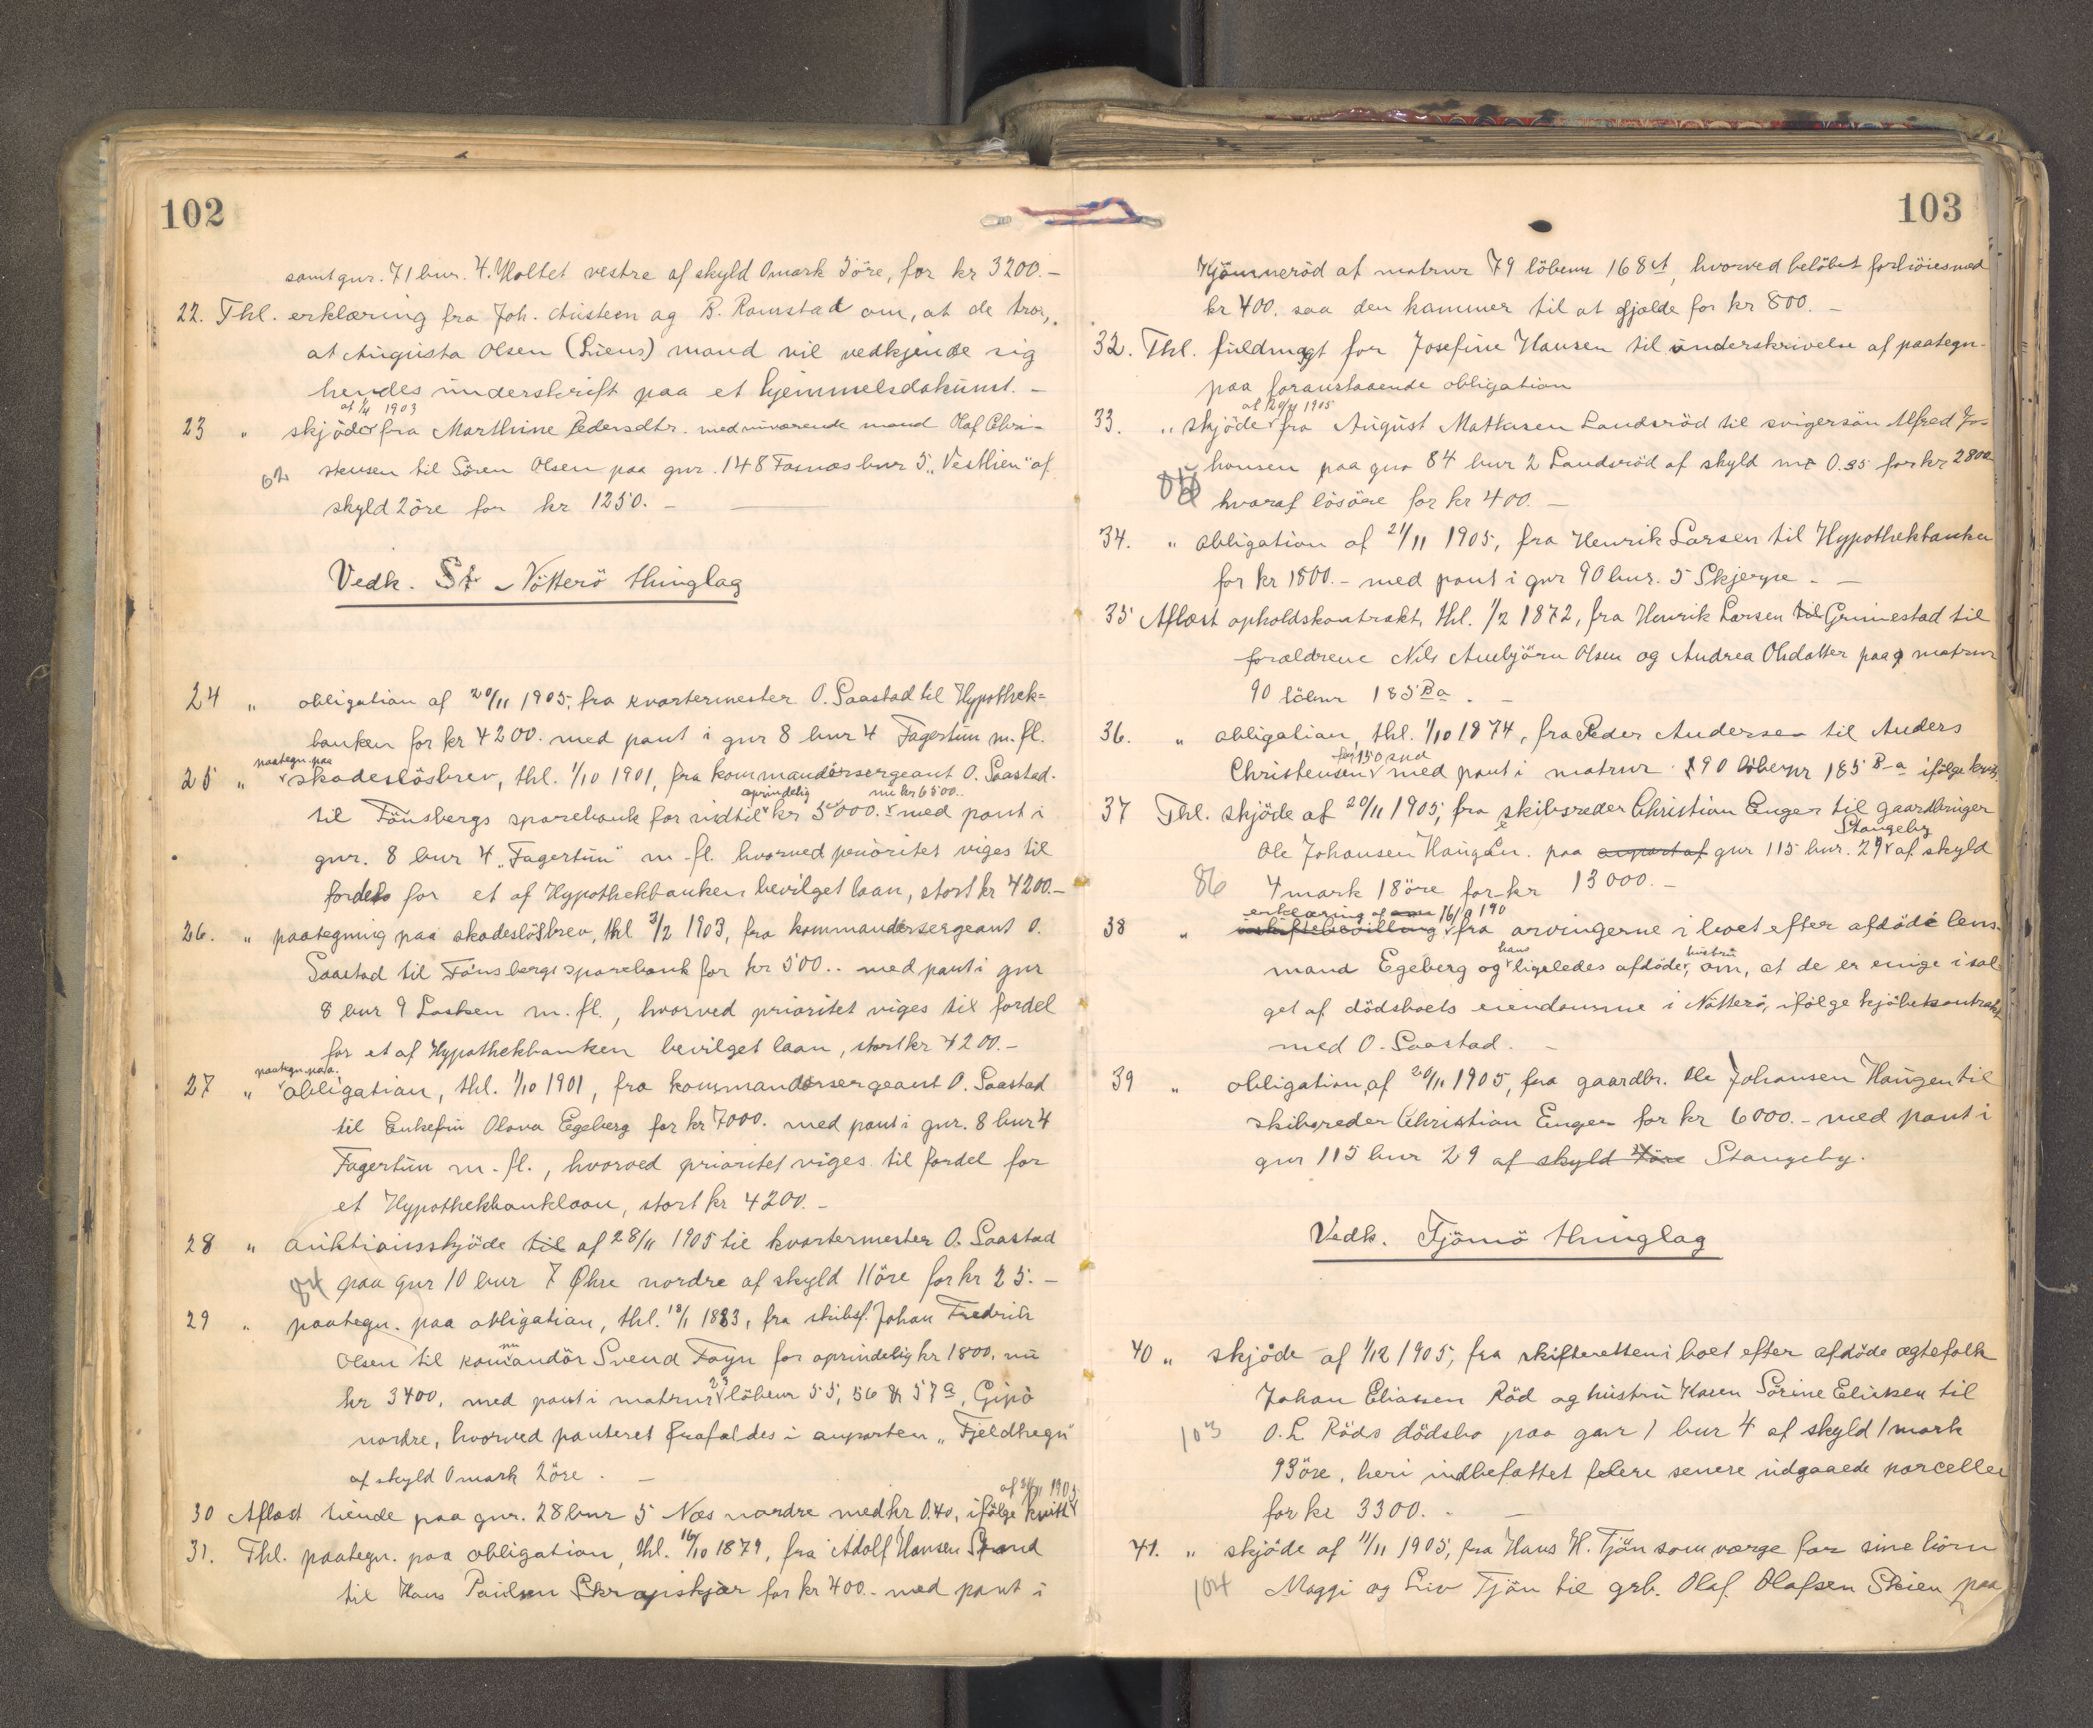 102
samt gnr. 71 bnr. 4. Holtet vestre af skyld 0mark 3öre, for kr 3200.-
22. Thl. erklæring fra Joh. Austeen og B. Ramstad om, at de tror,
at Augusta Olsen (Liens) mand vil vedkjende sig
hendes underskrift paa et hjemmelsdokument. -
af 1/4 1903
23 " skjöde fra Marthine Pedersdtr. med nuværende mand Olaf Chri-
62 stensen til Sören Olsen paa gnr. 148 Farnæs bnr 5 „Vestlien" af
skyld 2öre for kr 1250. -
Vedk. St Nötterö thinglag
24 " obligation af 20/11 1905, fra kvartermester O. Saastad til Hypothek-
banken for kr 4200. med pant i gnr 8 bnr 4 Fagertun m. fl.
paategn. paa
25 " skadeslösbrev, thl. 1/10 1901, fra kommandersergeant O. Saastad.
oprindelig nu kr 6500..
til Tönsbergs sparebank for indtil kr 5000. med pant i
gnr. 8 bnr 4 „Fagertun" m. fl. hvorved prioritet viges til
fordel for et af Hypothekbanken bevilget laan, stort kr 4200.-
26. " paategning paa skadeslösbrev, thl 3/2 1903, fra kommandersergeant O.
Saastad til Tönsbergs sparebank for kr 500.. med pant i gnr
8 bnr 9 Lasken m. fl., hvorved prioritet viges til fordel
for et af Hypothekbanken bevilget laan, stort kr 4200.-
paategn. paa.
27 " obligation, thl. 1/10 1901, fra kommandersergeant O. Saastad
til Enkefru Olava Egeberg for kr 7000. med pant i gnr. 8 bnr 4
Fagertun m. fl., hvorved prioritet viges til fordel for
et Hypothekbanklaan, stort kr 4200.-
28 " auktionsskjöde til af 28/11 1905 til kvartermester O. Saastad
84 paa gnr 10 bnr 7 Øhre nordre af skyld 11öre for kr 25.-
29 " paategn. paa obligation, thl. 18/1 1883, fra skibsf. Johan Fredrik
nu
Olsen til komandör Svend Foyn for oprindelig kr 1800, nu
23
kr 3400, med pant i matrnr löbenr 55, 56 & 57a, Gipö
nordre, hvorved panteret frafaldes i anparten „Fjeldhegn"
af skyld 0mark 2öre. -
af 21/11 1905
30 Aflæst tiende paa gnr. 28 bnr 5 Næs nordre med kr 0.40, ifölge kvitt
31. Thl. paategn. paa obligation, thl. 16/10 1879, fra Adolf Hansen Strand
til Hans Paulsen Skrapiskjær for kr 400.. med pant i
103
Kjönneröd af matrnr 79 löbenr 168a, hvorved belöbet forhöies med
kr 400. saa den kommer til at gjælde for kr 800. -
32. Thl. fuldmagt for Josefine Hansen til underskrivelse af paategn.
paa foranstaaende obligation
af 20/11 1905
33. " skjöde fra August Mathisen Landsröd til svigersön Alfred Jo-
hansen paa gnr 84 bnr 2 Landsröd af skyld mr 0.35 for kr 2800
hvoraf lösöre for kr 400. -
34. " obligation af 21/11 1905, fra Henrik Larsen til Hypothekbanken
for kr 1800.- med pant i gnr 90 bnr. 5 Skjerpe - -
35 Aflæst opholdskontrakt, thl. 1/2 1872, fra Henrik Larsen til Grimestad til
forældrene Nils Anebjörn Olsen og Andrea Olsdatter paa matrnr
90 löbnr 185 Ba. -
36. " obligation, thl. 1/10 1874, fra Peder Andersen til Anders
for 150 spd
Christensen med pant i matrnr 90 löbenr 185 B-a ifölge kvit.
37 Thl. skjöde af 20/11 1905, fra skibsreder Christian Enger til gaardbruger
Stangeby
Ole Johansen Haugen. paa anpart af gnr 115 bnr. 29 af skyld
86 4mark 18öre for kr 13000.-
erklæring af 16/9 190
38 " uskiftebevilling fra arvingerne i boet efter afdöde lens-
hans hustru
mand Egeberg og ligeledes afdöde, om, at de er enige i sal-
get af dödsboets eiendomme i Nötterö, ifölge kjöbekontrakt
med O. Saastad. -
39 " obligation, af 20/11 1905, fra gaardbr. Ole Johansen Haugen til
skibsreder Christian Enger for kr 6000.- med pant i
gnr 115 bnr 29 af skyld 4öre Stangeby.
Vedk. Tjömö thinglag
40 " skjöde af 1/12 1905, fra skifteretten i boet efter afdöde ægtefolk
Johan Eliassen Röd og hustru Karen Sörine Eliasen til
103 O. L. Röds dödsbo paa gnr 1 bnr 4 af skyld 1mark
93öre, heri indbefattet flere senere udgaaede parceller
for kr 3300. -
41. " skjöde af 11/11 1905, fra Hans H. Tjön som værge for sine börn
104 Maggi og Liv Tjön til grb. Olaf Olafsen Skien paa